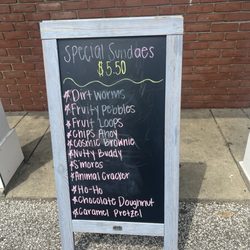 Special Sundaes
$5.50
*Dirt Worms
*Fruity Pebbles
*Fruit Loops
*Chips Ahoy
*Cosmic Brownie
*Nutty Buddy
*S'mores
*Animal Cracker
*Ho-Ho
*Chocolate Doughnut
*Caramel Pretzel